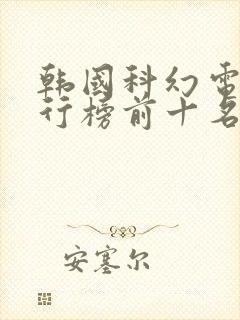 韩国科幻电
行榜前十名
安塞尔